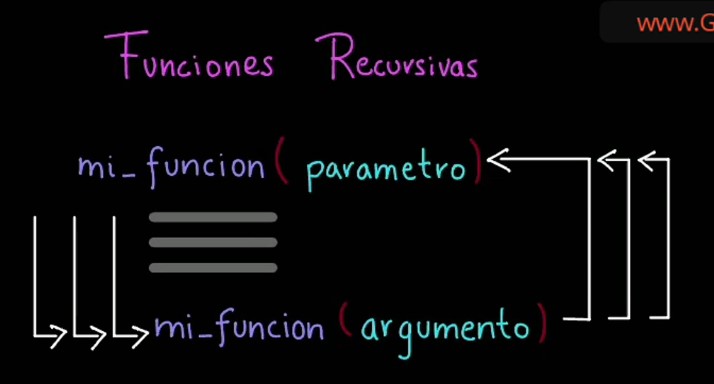 www.G
Funciones Recursivas
mi_funcion( parametro )
mi_funcion ( argumento )